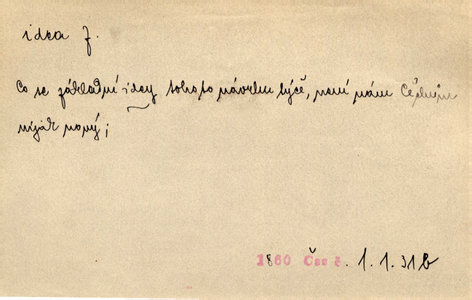 idea f.
Co se základní idey tohoto návrhu týče, není nám Čechům
nijak nový;
1860 Čas č. 1.1.31b